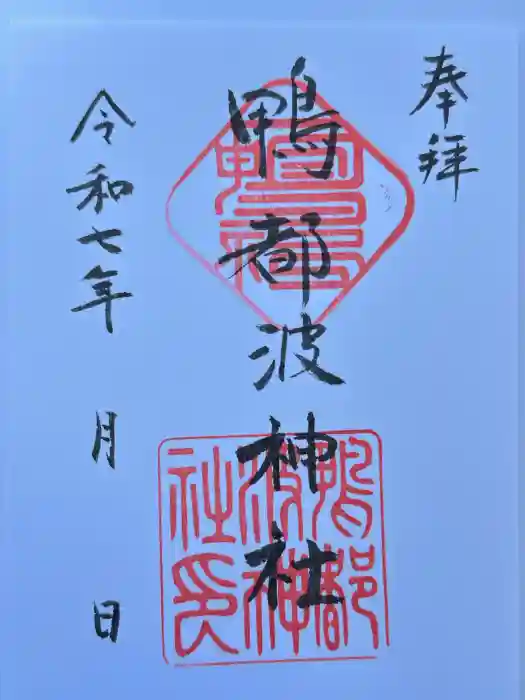 奉拝
鴨都波神社
鴨都波神社之印
令和七年 月 日